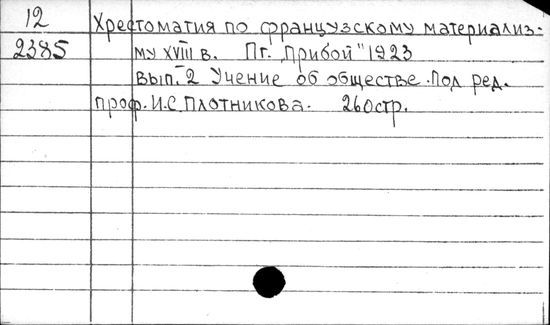 12 Хрестоматия по французскому материализ-
2385 му XVIII в. Пг. „Прибой" 1923
вып. 2 Учение об обществе. Под ред.
проф. И.С. Плотникова. 260стр.